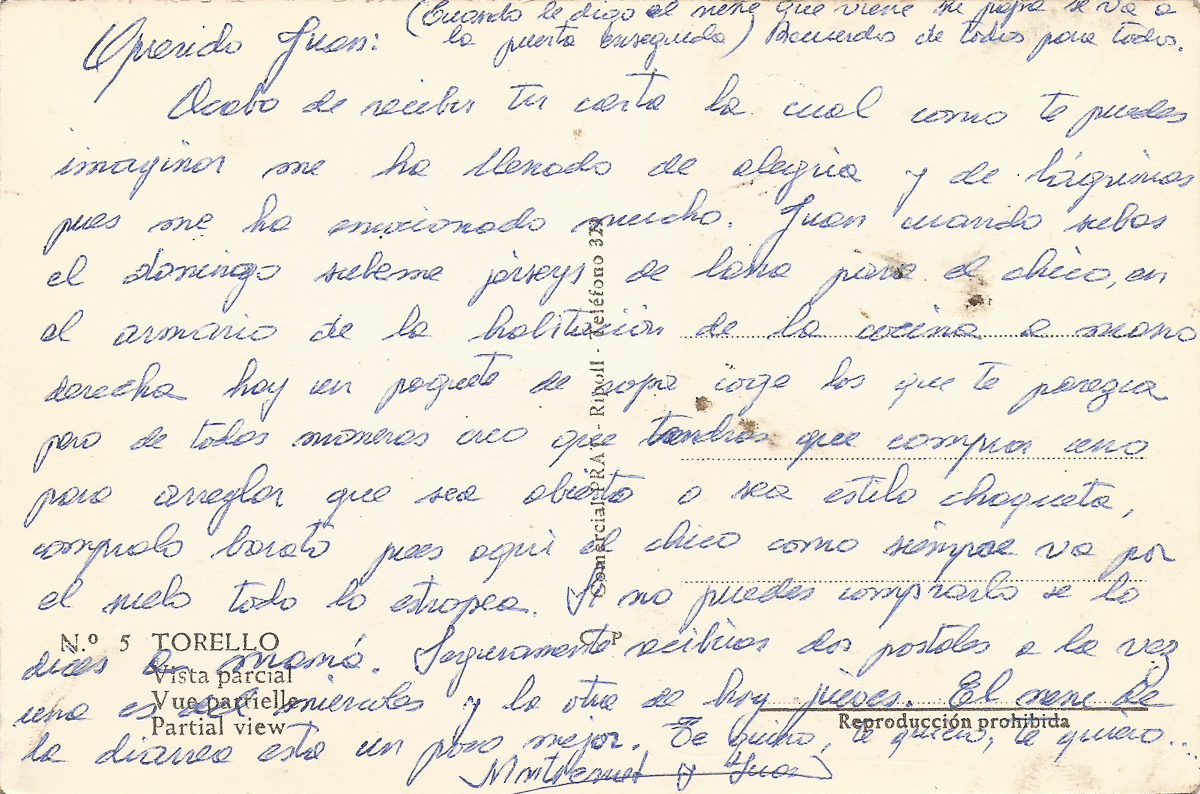 (Cuando le digo al nene que viene su papa se va a
la puerta enseguida) Recuerdos de todos para todos.
Querido Juan:
Acabo de recibir tu carta la cual como te puedes
imaginar me ha llenado de alegria y de lágrimas
pues me ha emocionado mucho. Juan cuando subas
el domingo subeme jerseys de lana para el chico, en
el armario de la habitacion de la cocina a mano
derecha hay un paquete de ropa coge los que te parezca
pero de todas maneras creo que tendras que comprar uno
para arreglar que sea abierto o sea estilo chaqueta,
compralo barato pues aqui el chico como siempre va por
el suelo todo lo estropea. Si no puedes comprarlo se lo
dices a mamá. Seguramente recibiras dos postales a la vez
una es del miercoles y la otra de hoy jueves. El nene de
la diarrea esta un poco mejor. Te quiero, te quiero, te quiero...
Montserrat y Juan
Comercial PRAT - Ripoll - Teléfono 329
C. P
N.º 5 TORELLO
Vista parcial
Vue partielle
Partial view
Reproducción prohibida